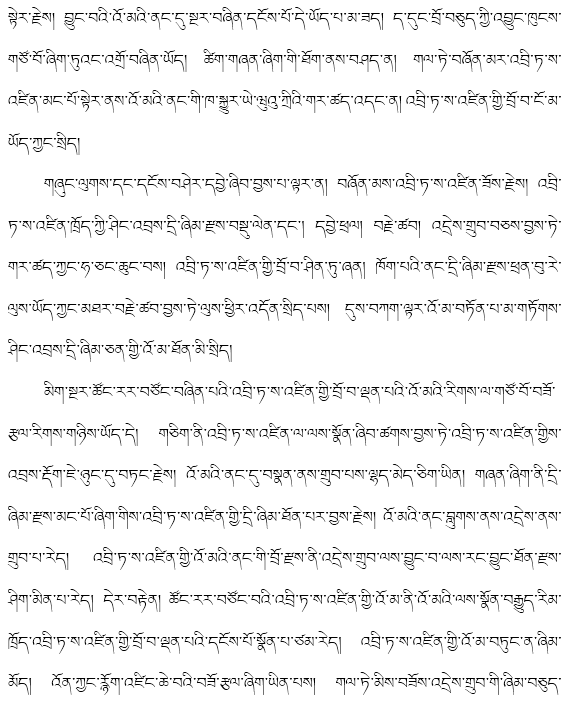 སྟེར་རྗེས། བྱུང་བའི་འོ་མའི་ནང་དུ་སྔར་བཞིན་དངོས་པོ་དེ་ཡོད་པ་མ་ཟད། ད་དུང་བྲོ་བཅུད་ཀྱི་འབྱུང་ཁུངས་
གཙོ་བོ་ཞིག་ཏུའང་འགྲོ་བཞིན་ཡོད། ཚིག་གཞན་ཞིག་གི་ཐོག་ནས་བཤད་ན། གལ་ཏེ་བཞོན་མར་འབྲི་ཏ་ས་
འཛིན་མང་པོ་སྟེར་ནས་འོ་མའི་ནང་གི་ཁ་སྐྱུར་ཡེ་ཝུའུ་ཀྲིའི་གར་ཚད་འདང་ན། འབྲི་ཏ་ས་འཛིན་གྱི་བྲོ་བ་ངོ་མ་
ཡོད་ཀྱང་སྲིད།
གཞུང་ལུགས་དང་དངོས་བཤེར་དབྱེ་ཞིབ་བྱས་པ་ལྟར་ན། བཞོན་མས་འབྲི་ཏ་ས་འཛིན་ཟོས་རྗེས། འབྲི་
ཏ་ས་འཛིན་ཁྲོད་ཀྱི་ཤིང་འབྲས་དྲི་ཞིམ་རྫས་བསྡུ་ལེན་དང་། དབྱེ་ཕྲལ། བརྗེ་ཚབ། འདྲེས་གྲུབ་བཅས་བྱས་ཏེ་
གར་ཚད་ཀྱང་ཧ་ཅང་ཆུང་བས། འབྲི་ཏ་ས་འཛིན་གྱི་བྲོ་བ་ཤིན་ཏུ་ཞན། ཁོག་པའི་ནང་དྲི་ཞིམ་རྫས་ཕྲན་བུ་རེ་
ལུས་ཡོད་ཀྱང་མཐར་བརྗེ་ཚབ་བྱས་ཏེ་ལུས་ཕྱིར་འདོན་སྲིད་པས། དུས་བཀག་ལྟར་འོ་མ་བཏོན་པ་མ་གཏོགས་
ཤིང་འབྲས་དྲི་ཞིམ་ཅན་གྱི་འོ་མ་ཐོན་མི་སྲིད།
མིག་སྔར་ཚོང་རར་བཙོང་བཞིན་པའི་འབྲི་ཏ་ས་འཛིན་གྱི་བྲོ་བ་ལྡན་པའི་འོ་མའི་རིགས་ལ་གཙོ་བོ་བཟོ་
རྩལ་རིགས་གཉིས་ཡོད་དེ། གཅིག་ནི་འབྲི་ཏ་ས་འཛིན་ལ་ལས་སྣོན་ཞིབ་ཚགས་བྱས་ཏེ་འབྲི་ཏ་ས་འཛིན་གྱིས་
འབྲས་རྡོག་ཇེ་ཉུང་དུ་བཏང་རྗེས། འོ་མའི་ནང་དུ་བསྣན་ནས་གྲུབ་པས་ལྷད་མེད་ཅིག་ཡིན། གཞན་ཞིག་ནི་དྲི་
ཞིམ་རྫས་མང་པོ་ཞིག་གིས་འབྲི་ཏ་ས་འཛིན་གྱི་དྲི་ཞིམ་ཐོན་པར་བྱས་རྗེས། འོ་མའི་ནང་བླུགས་ནས་འདྲེས་ནས་
གྲུབ་པ་རེད། འབྲི་ཏ་ས་འཛིན་གྱི་འོ་མའི་ནང་གི་བྲོ་རྫས་ནི་འདྲེས་གྲུབ་ལས་བྱུང་བ་ལས་རང་བྱུང་ཐོན་རྫས་
ཤིག་མིན་པ་རེད། དེར་བརྟེན། ཚོང་རར་བཙོང་བའི་འབྲི་ཏ་ས་འཛིན་གྱི་འོ་མ་ནི་འོ་མའི་ལས་སྣོན་བརྒྱུད་རིམ་
ཁྲོད་འབྲི་ཏ་ས་འཛིན་གྱི་བྲོ་བ་ལྡན་པའི་དངོས་པོ་སྣོན་པ་ཙམ་རེད། འབྲི་ཏ་ས་འཛིན་གྱི་འོ་མ་བཏུང་ན་ཞིམ་
མོད། འོན་ཀྱང་རྙོག་འཛིང་ཆེ་བའི་བཟོ་རྩལ་ཞིག་ཡིན་པས། གལ་ཏེ་མིས་བཟོས་འདྲེས་གྲུབ་གི་ཞིམ་བཅུད་